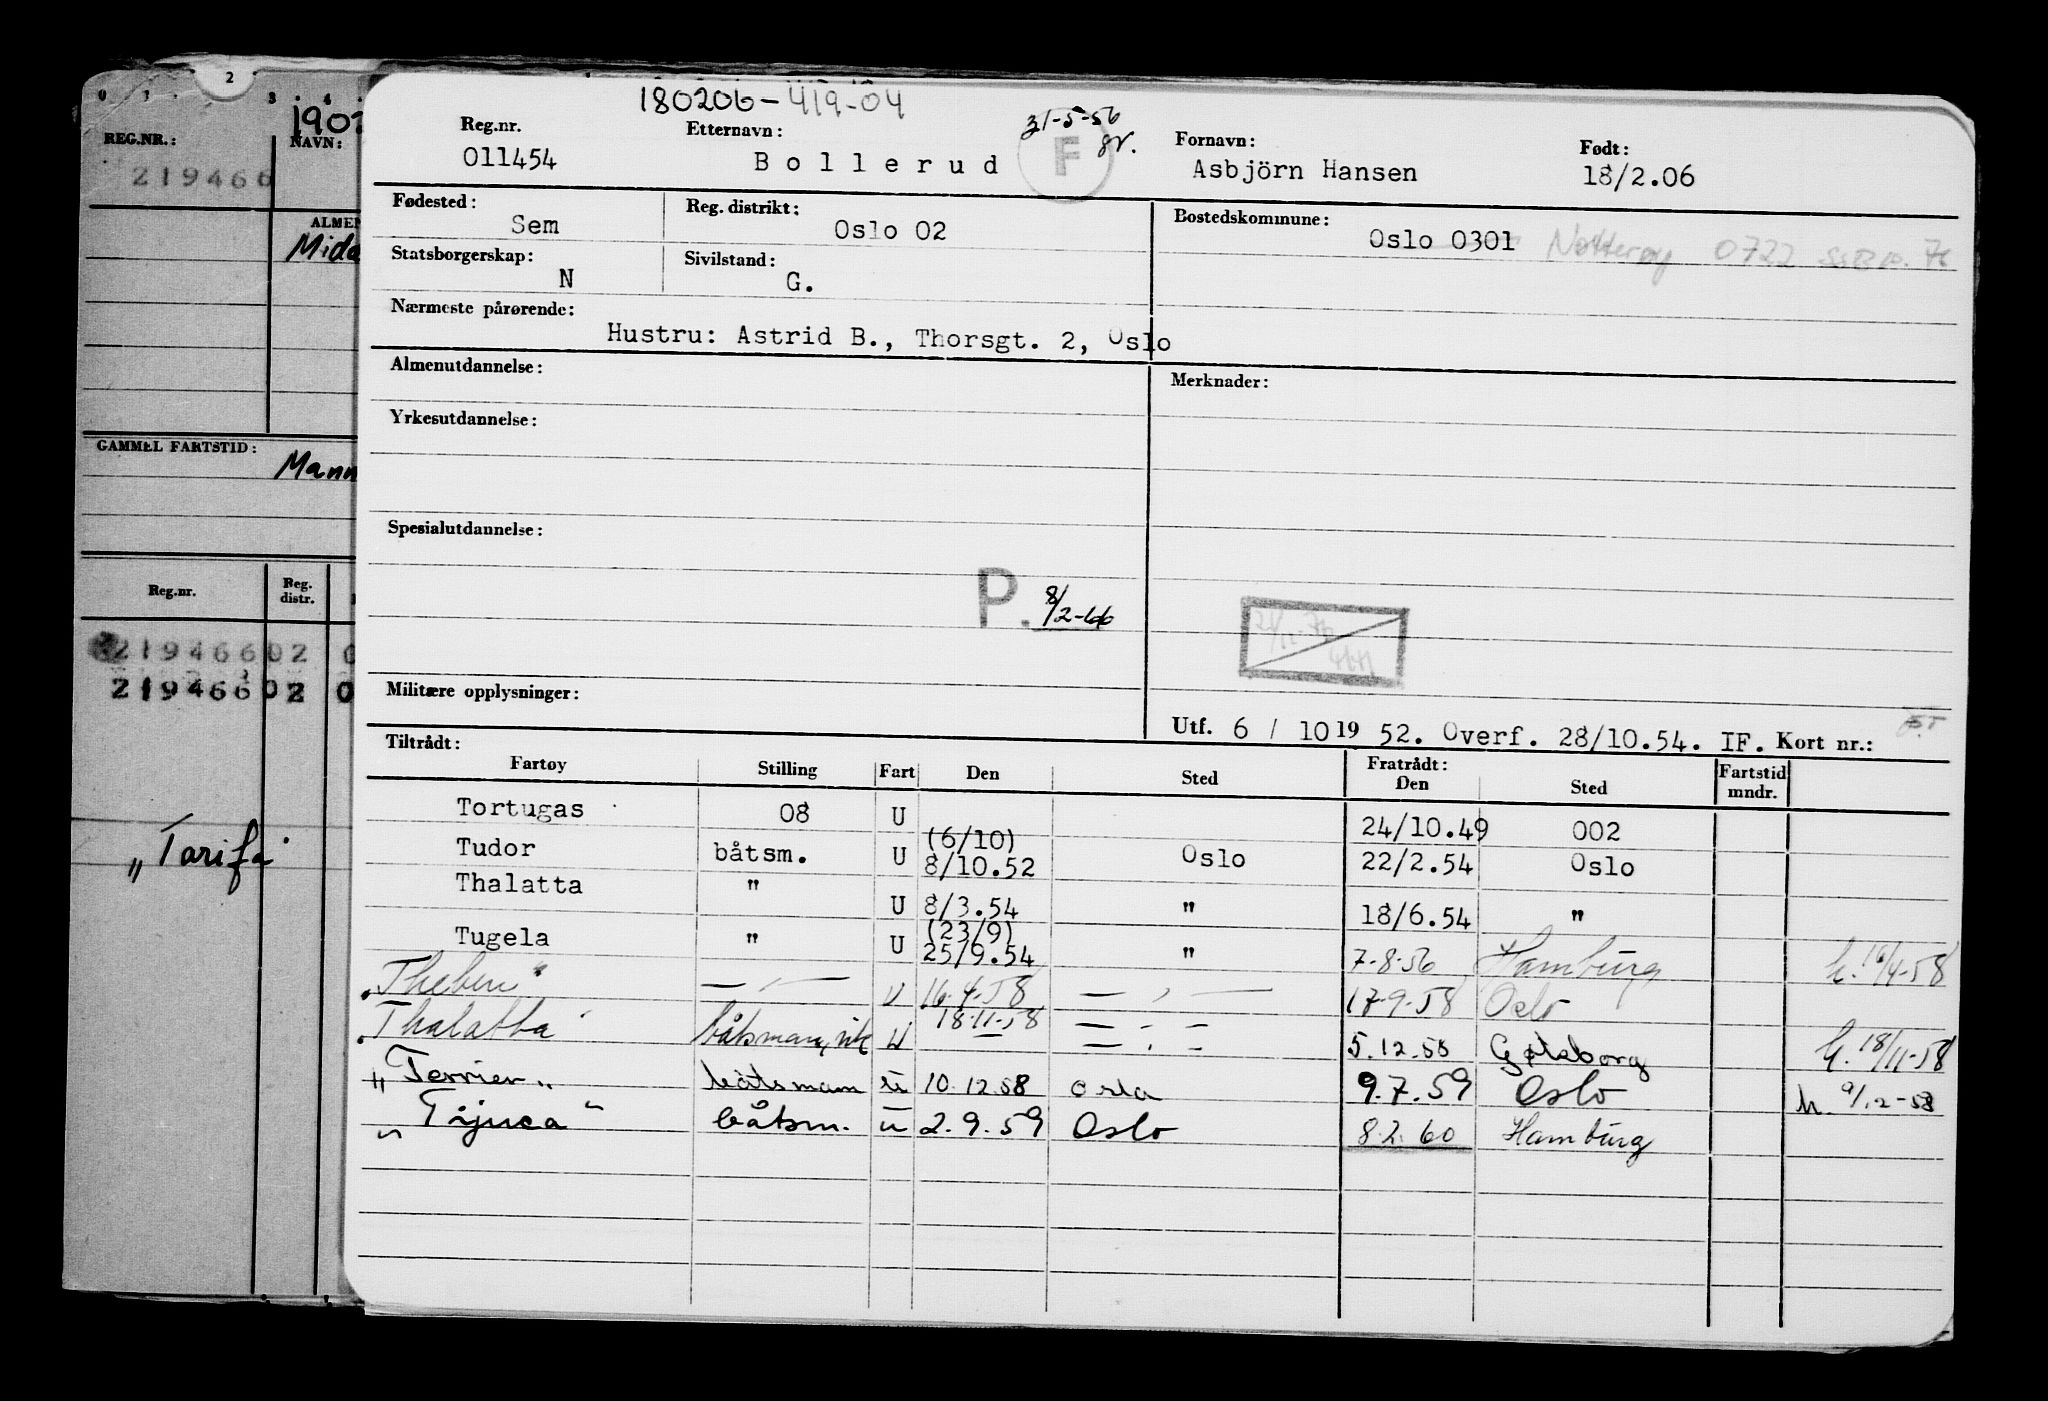 0 1 2 3 4
1902
REG.NR.: NAVN:
219466
ALMEN
Mida
GAMMEL FARTSTID:
Mann
Reg.nr. Reg. distr.
219466 02 0
219466 02 0
"Tarifa"
180206-419-04
Reg.nr. Etternavn: 31-5-56 Fornavn: Født:
011454 Bollerud F gr. Asbjörn Hansen 18/2.06
Fødested: Reg. distrikt: Bostedskommune:
Sem Oslo 02 Oslo 0301 Nøtterøy 0722
Statsborgerskap: Sivilstand:
N G.
Nærmeste pårørende:
Hustru: Astrid B., Thorsgt. 2, Oslo
Almenutdannelse: Merknader:
Yrkesutdannelse:
Spesialutdannelse:
P. 8/2-66
Militære opplysninger:
Utf. 6 / 10 19 52. Overf. 28/10.54. IF. Kort nr.:
Tiltrådt: Fratrådt: Fartstid
Fartøy Stilling Fart Den Sted Den Sted mndr.
Tortugas 08 U 24/10.49 002
Tudor båtsm. U (6/10) 8/10.52 Oslo 22/2.54 Oslo
Thalatta " U 8/3.54 " 18/6.54 "
Tugela " U (23/9) 25/9.54 " 7-8-56 Hamburg h. 16/4-58
"Theben" — " — U 16.4.58 — " — 17-9-58 Oslo
"Thalatta" båtsmann U 18.11.58 — " — 5.12.58 Gøteborg h. 18/11-58
"Terrier" båtsmann u 10.12.58 Oslo 9.7.59 Oslo h. 9/12-58
"Tijuca" båtsm. u 2.9.59 Oslo 8.2.60 Hamburg